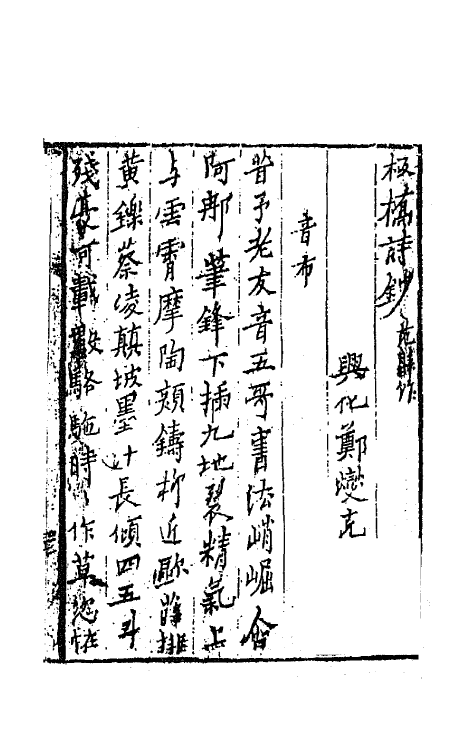 板橋詩鈔 范縣作
興化鄭燮克
音布
昔予老友音五哥書法峭崛含
阿那筆鋒下插九地裂精氣上
与雲霄摩陶顏鑄柳近歐薛排
黄鑠蔡凌顛坡墨汁長傾四五斗
殘豪可載數駱駝時時作草恣怪